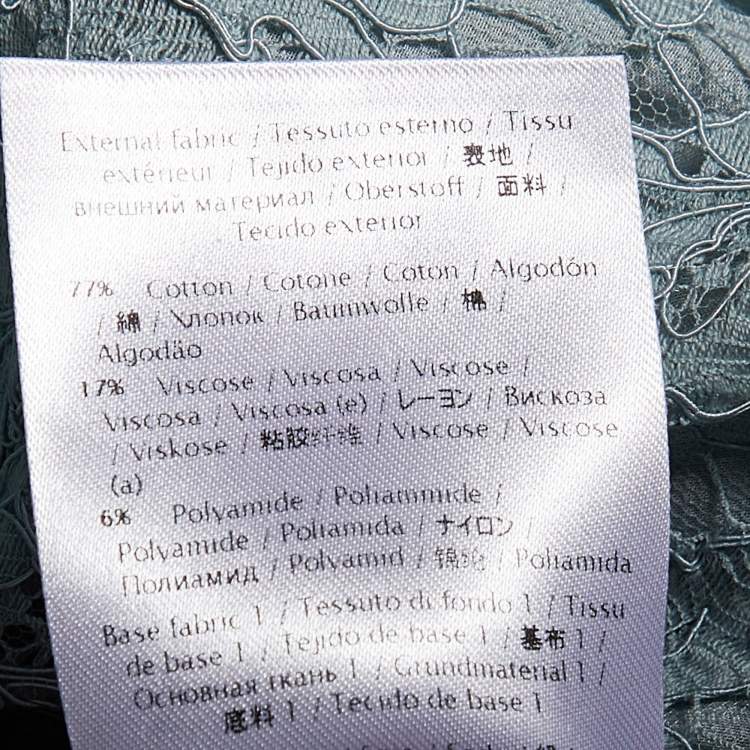 External fabric / Tessuto esterno / Tissu
extérieur / Tejido exterior / 表地 /
внешний материал / Oberstoff / 面料 /
Tecido exterior
77% Cotton / Cotone / Coton / Algodón
/ 綿 / Хлопок / Baumwolle / 棉 /
Algodão
17% Viscose / Viscosa / Viscose /
Viscosa / Viscosa (e) / レーヨン / Вискоза
/ Viskose / 粘胶纤维 / Viscose / Viscose
(a)
6% Polyamide / Poliammide /
Polyamide / Poliamida / ナイロン /
Полиамид / Polyamid / 锦纶 / Poliamida
Base fabric 1 / Tessuto di fondo 1 / Tissu
de base 1 / Tejido de base 1 / 基布 1 /
Основная ткань 1 / Grundmaterial 1 /
底料 1 / Tecido de base 1